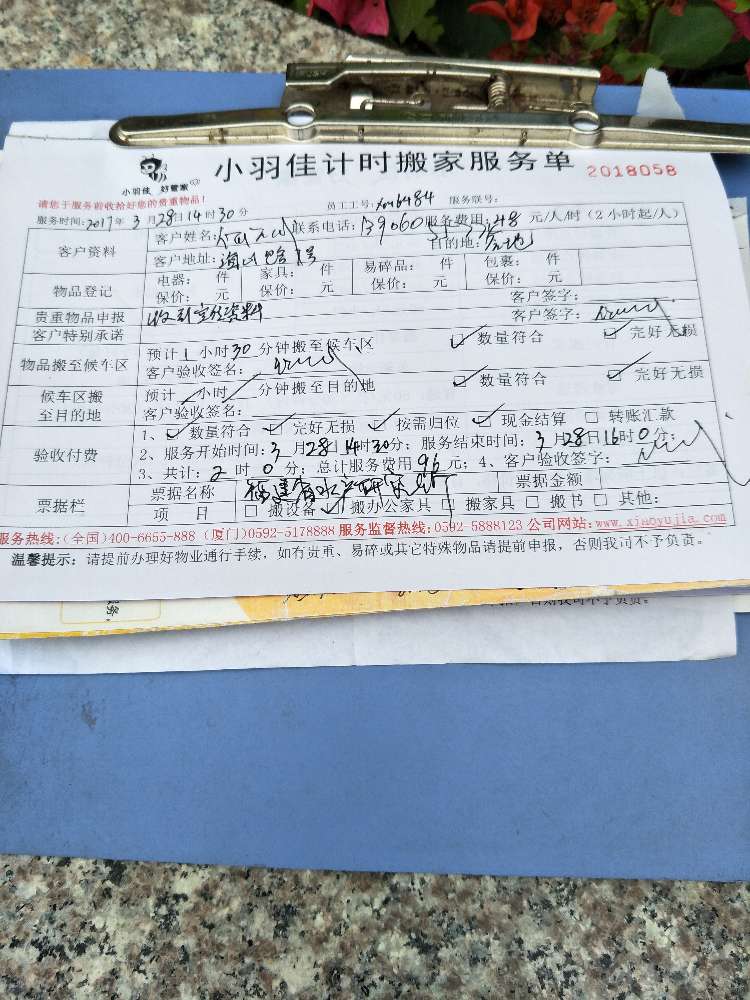 小羽佳计时搬家服务单 2018058
小羽佳 好管家
请您于服务前收拾好您的贵重物品!
服务时间:2017年3月28日14时30分 员工工号: 服务联号:
客户资料 客户姓名: 联系电话: 服务费用:48元/人/时(2小时起/人)
客户地址: 目的地:
物品登记 电器: 件 家具: 件 易碎品: 件 包裹: 件
保价: 元 保价: 元 保价: 元 保价: 元
贵重物品申报 客户签字:
客户特别承诺 客户签字:
物品搬至候车区 预计1小时30分钟搬至候车区 ☑数量符合 ☑完好无损
客户验收签名:
候车区搬至目的地 预计 小时 分钟搬至目的地 ☑数量符合 ☑完好无损
客户验收签名:
验收付费 1、☑数量符合 ☑完好无损 ☑按需归位 ☑现金结算 □转账汇款
2、服务开始时间:3月28日14时30分; 服务结束时间:3月28日16时0分;
3、共计:2时0分; 总计服务费用96元; 4、客户验收签字:
票据栏 票据名称 福建省水产研究所 票据金额
项 目 □搬设备 ☑搬办公家具 □搬家具 □搬书 □其他:
服务热线:(全国)400-6655-888 (厦门)0592-5178888 服务监督热线:0592-5888123 公司网站:www.xjaoyujia.com
温馨提示: 请提前办理好物业通行手续, 如有贵重、易碎或其它特殊物品请提前申报, 否则我司不予负责。